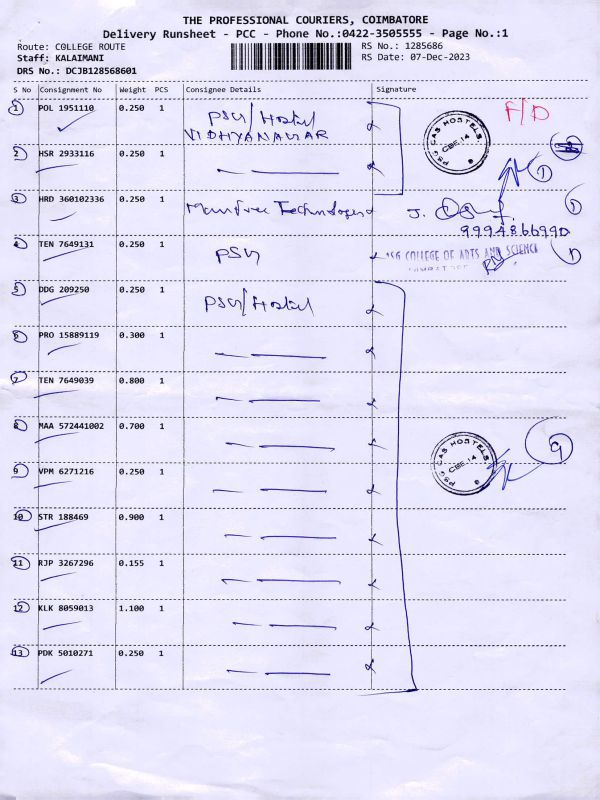 THE PROFESSIONAL COURIERS, COIMBATORE
Delivery Runsheet - PCC - Phone No.:0422-3505555 - Page No.:1
Route: COLLEGE ROUTE
RS No.: 1285686
Staff: KALAIMANI
RS Date: 07-Dec-2023
DRS No.: DCJB128568601
S No Consignment No Weight PCS Consignee Details Signature
1 POL 1951110 0.250 1 PSG/Hostel
VIDHYANAGAR
PSG CAS HOSTELS
CBE-14
F/D
2 HSR 2933116 0.250 1
3 HRD 360102336 0.250 1 Technologies J.
9994866990
4 TEN 7649131 0.250 1 PSG PSG COLLEGE OF ARTS AND SCIENCE
5 DDG 209250 0.250 1 PSG/Hostel
6 PRO 15889119 0.300 1
7 TEN 7649039 0.800 1
8 MAA 572441002 0.700 1
PSG CAS HOSTELS
CBE-14
9
9 VPM 6271216 0.250 1
10 STR 188469 0.900 1
11 RJP 3267296 0.155 1
12 KLK 8059013 1.100 1
13 PDK 5010271 0.250 1